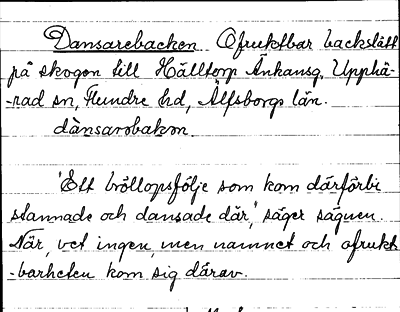 Dansarebacken Ofruktbar backslätt
på skogen till Hälltorp Änkansg. Upphä-
-rad sn, Flundre hd, Älfsborgs län.
dànsarəbakən
"Ett bröllopsfölje som kom därförbi
stannade och dansade där", säger sägnen.
När, vet ingen, men namnet och ofrukt-
-barheten kom sig därav.